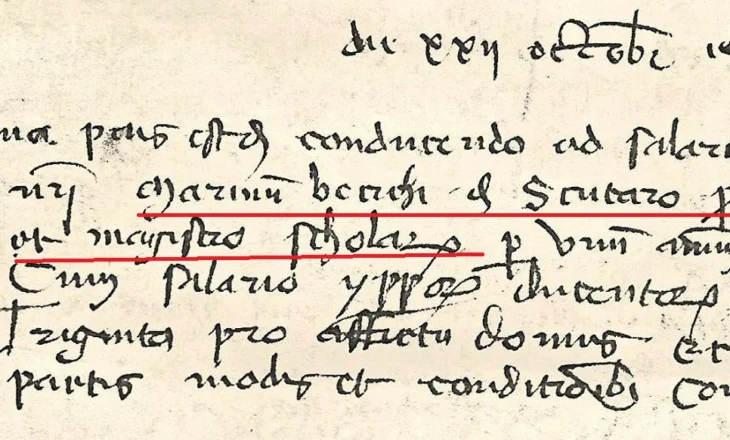 die xxii octobr
ps est de conducendo ad salari
nri Marinū becichi de Scutaro p
et magistro scholar p vnū annū
Cum salario ypperor ducentor
Triginta pro affictu domus et
pactis modis et conditionibꝰ con